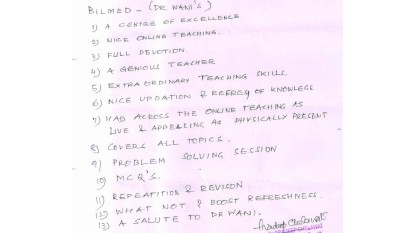 BILMED - (DR WANI'S)
1) A CENTRE OF EXCELLENCE
2) NICE ONLINE TEACHING.
3) FULL DEVOTION.
4) A GENIOUS TEACHER
5) EXTRA ORDINARY TEACHING SKILLS.
6) NICE UPDATION & REFREQ OF KNOWLEGE
7) HAD ACROSS THE ONLINE TEACHING AS
LIVE & APPEARING AS PHYSICALLY PRESENT
8) COVERS ALL TOPICS.
9) PROBLEM SOLVING SESSION
10) MCQ'S.
11) REPEATITION & REVISON
12) WHAT NOT & BOOST REFRESHNESS.
13) A SALUTE TO DR WANI.